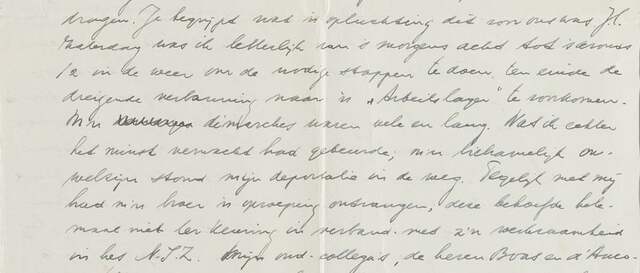 dragen. Je begrijpt wat 'n opluchting dit voor ons was. J.l.
Zaterdag was ik letterlijk van 's morgens acht tot 's avonds
12 in de weer om de nodige stappen te doen, ten einde de
dreigende verbanning naar 'n „Arbeitslager" te voorkomen.
M'n démarches waren vele en lang. Wat ik echter
het minst verwacht had gebeurde; m'n lichamelijk on-
welzijn stond mijn deportatie in de weg. Tegelijk met mij
had m'n broer 'n oproeping ontvangen, deze behoefde hele-
maal niet ter keuring in verband met z'n werkzaamheid
in het N.I.Z. Mijn oud-collega's, de heren Boas en d'Anco-